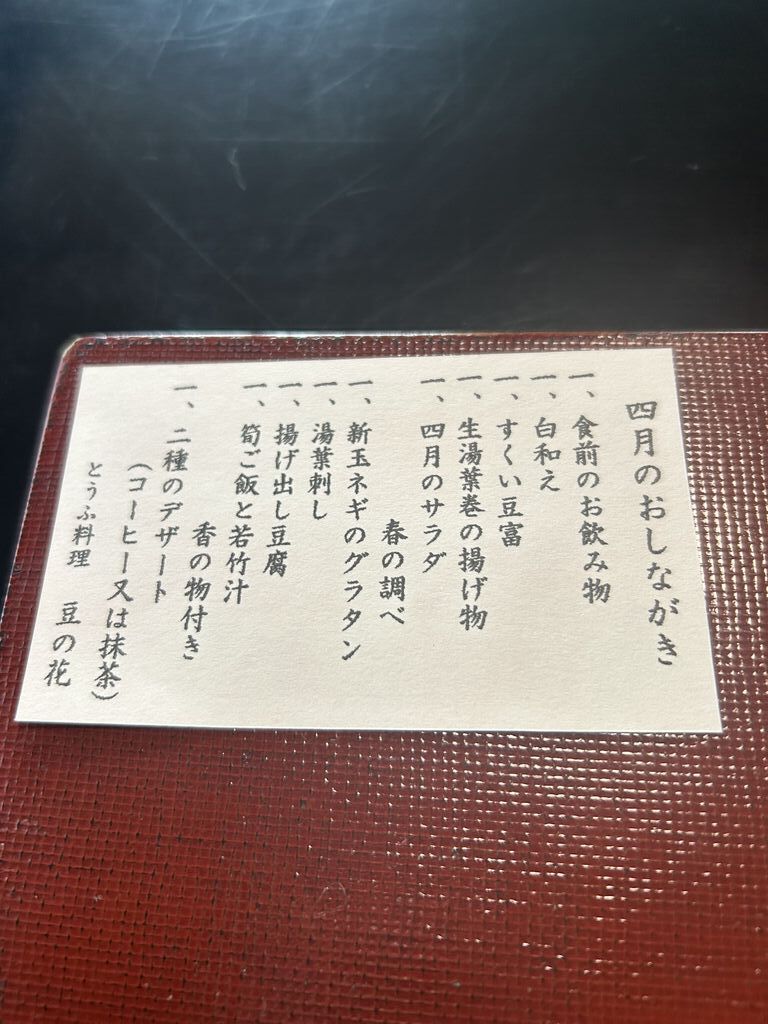 四月のおしながき
一、食前のお飲み物
一、白和え
一、すくい豆富
一、生湯葉巻の揚げ物
一、四月のサラダ
春の調べ
一、新玉ネギのグラタン
一、湯葉刺し
一、揚げ出し豆腐
一、筍ご飯と若竹汁
香の物付き
一、二種のデザート
(コーヒー又は抹茶)
とうふ料理 豆の花